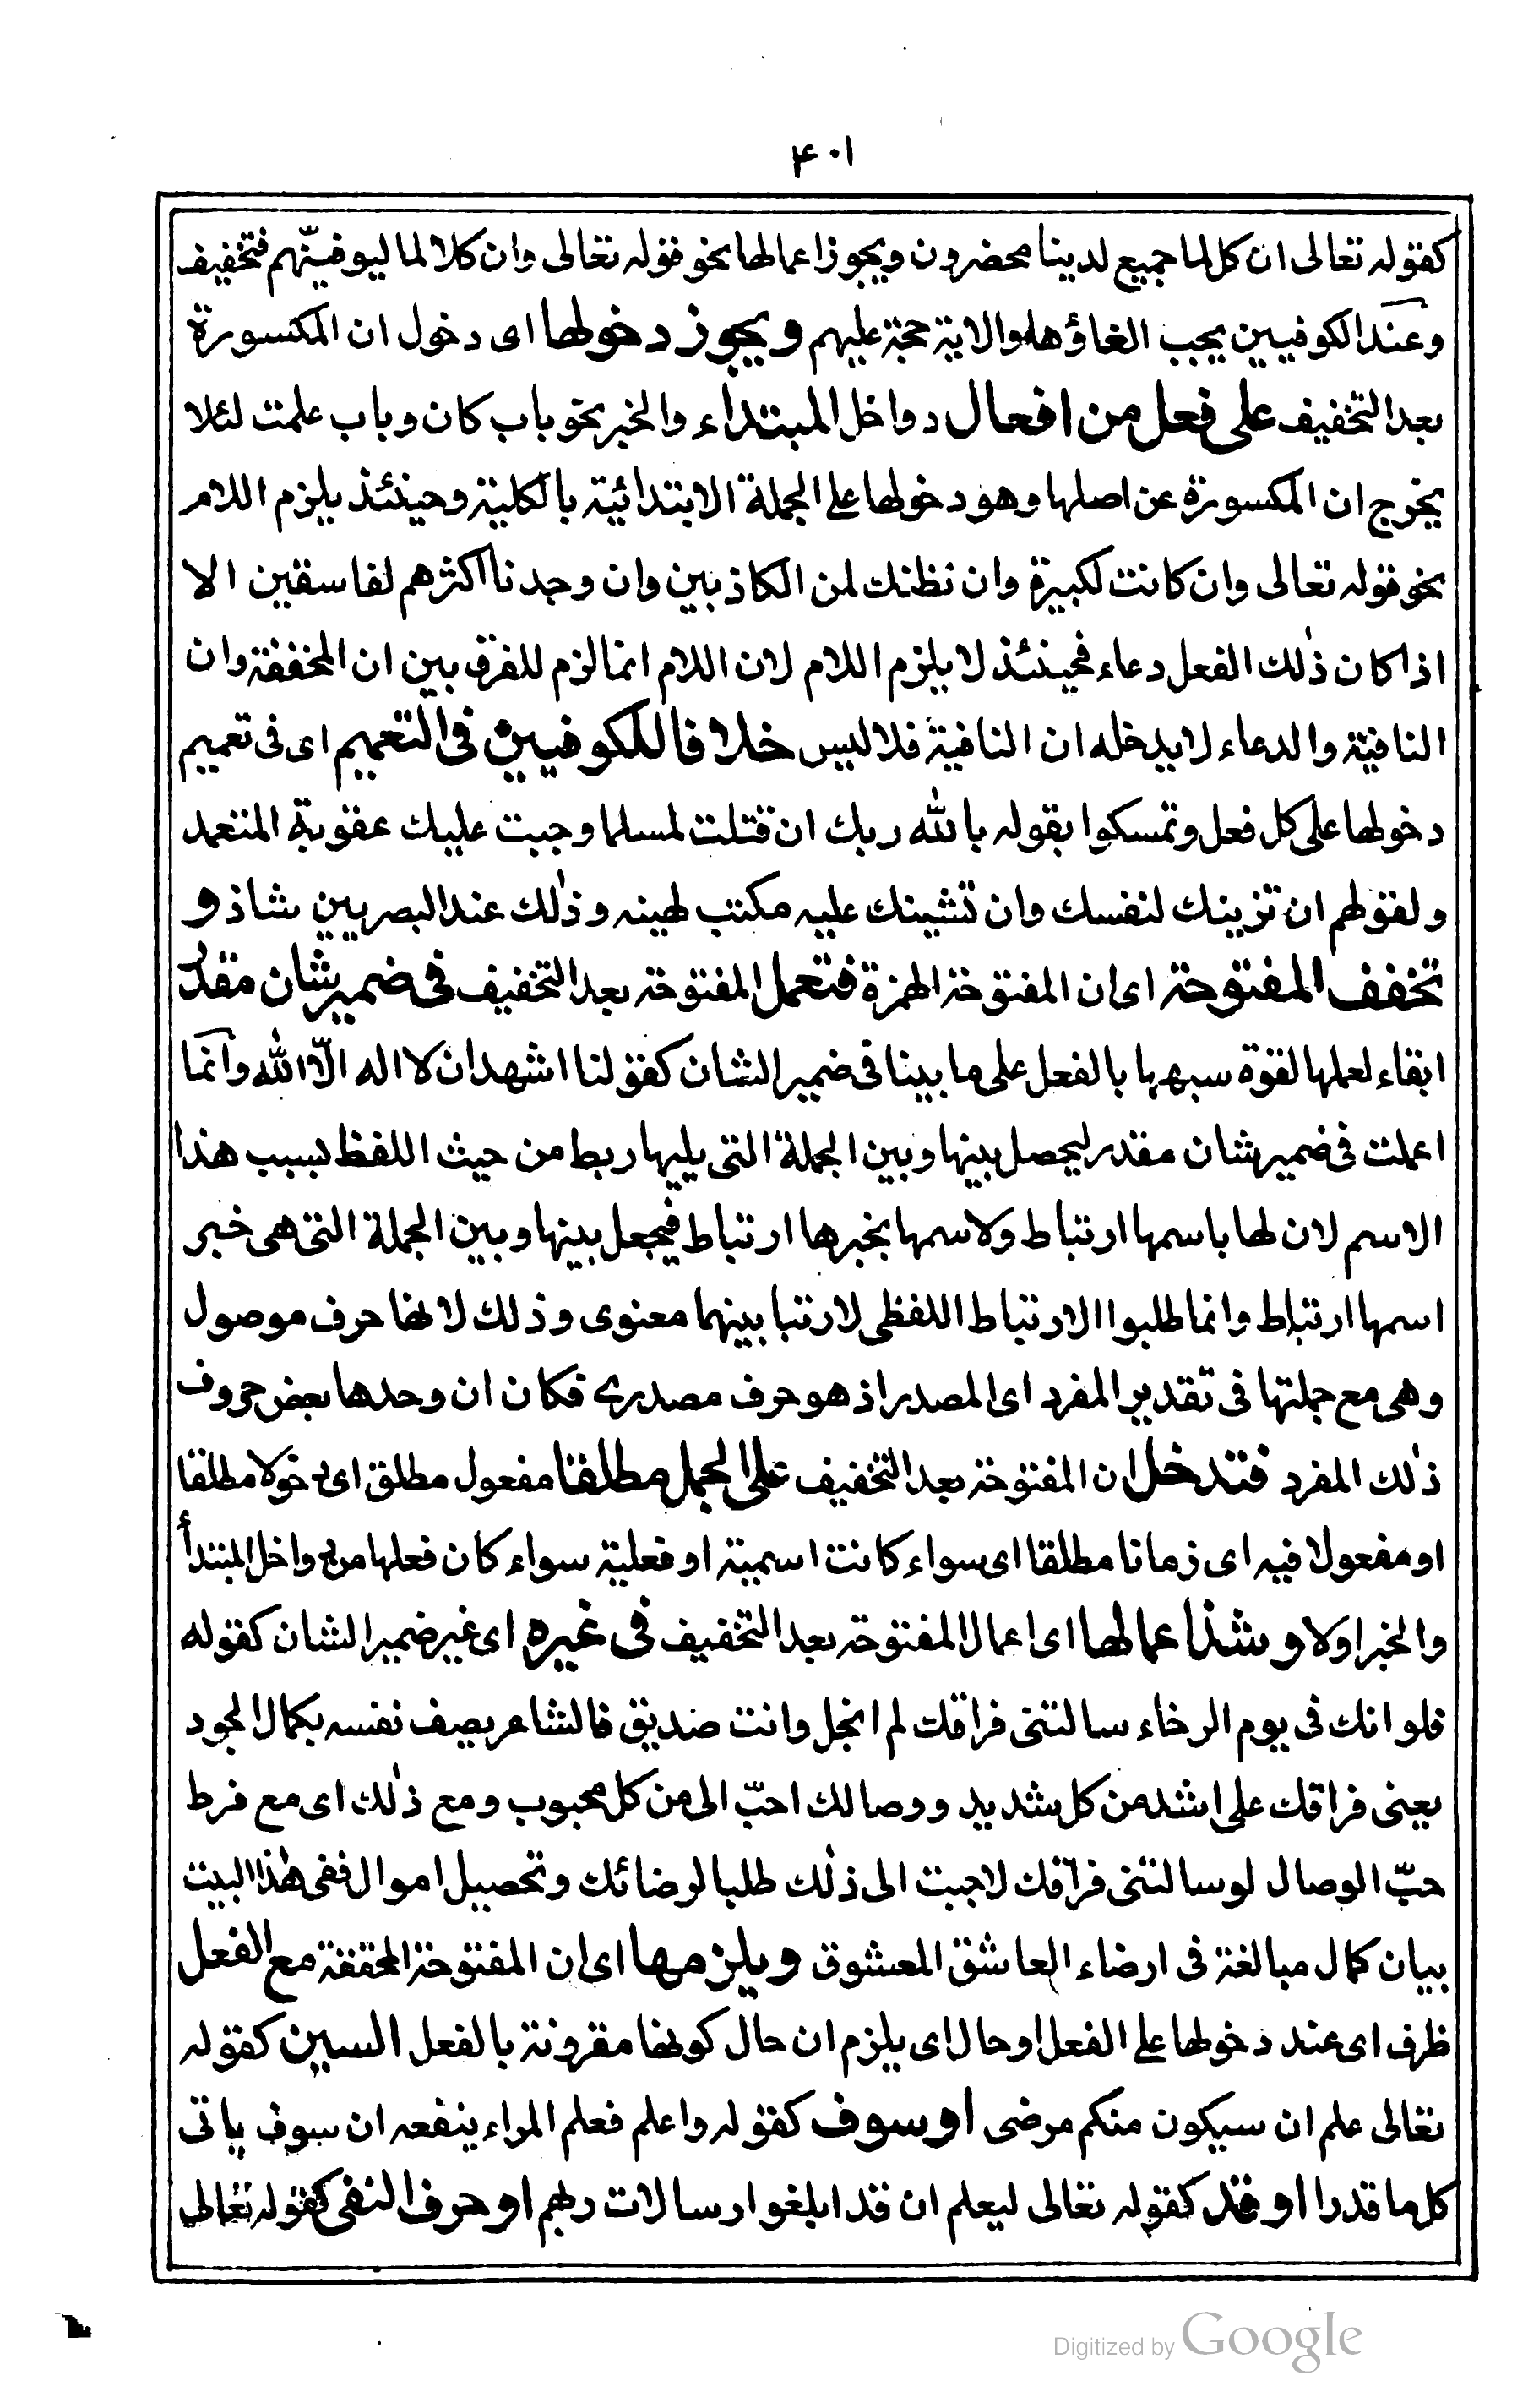 ۴۰۱
كقوله تعالى ان كل لما جميع لدينا محضرون ويجوز اعمالها نحو قوله تعالى وان كلا لما ليوفينّهم فتخفيف
وعند الكوفيين يجب الغاؤها والاية حجة عليهم ويجوز دخولها اى دخول ان المكسورة
بعد التخفيف على فعل من افعال دواخل المبتداء والخبر نحو باب كان وباب علمت لئلا
يخرج ان المكسورة عن اصلها وهو دخولها على الجملة الابتدائية بالكلية وحينئذ يلزم اللام
نحو قوله تعالى وان كانت لكبيرة وان نظنك لمن الكاذبين وان وجدنا اكثرهم لفاسقين الا
اذا كان ذلك الفعل دعاء فحينئذ لا يلزم اللام لان اللام انما لزم للفرق بين ان المخففة وان
النافية والدعاء لا يدخله ان النافية فلا لبس خلافا للكوفيين فى التعميم اى فى تعميم
دخولها على كل فعل وتمسكوا بقوله بالله ربك ان قتلت لمسلما وجبت عليك عقوبة المتعمد
ولقولهم ان تزينك لنفسك وان تشينك عليه مكتب لهينه وذلك عند البصريين شاذ و
تخفف المفتوحة اى ان المفتوحة الهمزة فتعمل المفتوحة بعد التخفيف فى ضمير شان مقدر
ابقاء لعملها لقوة سبهها بالفعل على ما بينا فى ضمير الشان كقولنا اشهد ان لا اله الّا الله وانما
اعملت فى ضمير شان مقدر ليحصل بينها وبين الجملة التى يليها ربط من حيث اللفظ بسبب هذا
الاسم لان لها باسمها ارتباط ولاسمها بخبرها ارتباط فيجعل بينها وبين الجملة التى هى خبر
اسمها ارتباط وانما طلبوا الارتباط اللفظى لارتبا بينهما معنوى وذلك لانها حرف موصول
وهى مع جملتها فى تقدير المفرد اى المصدر اذ هو حرف مصدرى فكان ان وحدها بعض حروف
ذلك المفرد فتدخل ان المفتوحة بعد التخفيف على الجمل مطلقا مفعول مطلق اى دخولا مطلقا
او مفعولا فيه اى زمانا مطلقا اى سواء كانت اسمية او فعلية سواء كان فعلها من دواخل المبتدأ
والخبر اولا وشذ اعمالها اى اعمال المفتوحة بعد التخفيف فى غيره اى غير ضمير الشان كقوله
فلو انك فى يوم الرخاء سالتنى فراقك لم ابخل وانت صديق فالشاعر يصف نفسه بكمال الجود
يعنى فراقك على اشد من كل شديد ووصالك احبّ الى من كل محبوب ومع ذلك اى مع فرط
حبّ الوصال لو سالتنى فراقك لاجبت الى ذلك طلبا لرضائك وتحصيل اموال ففى هذا البيت
بيان كمال مبالغة فى ارضاء العاشق المعشوق ويلزمها اى ان المفتوحة المخففة مع الفعل
ظرف اى عند دخولها على الفعل او حال اى يلزم ان حال كونها مقرونة بالفعل السين كقوله
تعالى علم ان سيكون منكم مرضى او سوف كقوله واعلم فعلم المراء ينفعه ان سوف ياتى
كل ما قدرا او قد كقوله تعالى ليعلم ان قد ابلغوا رسالات ربهم او حرف النفى كقوله تعالى
Digitized by Google